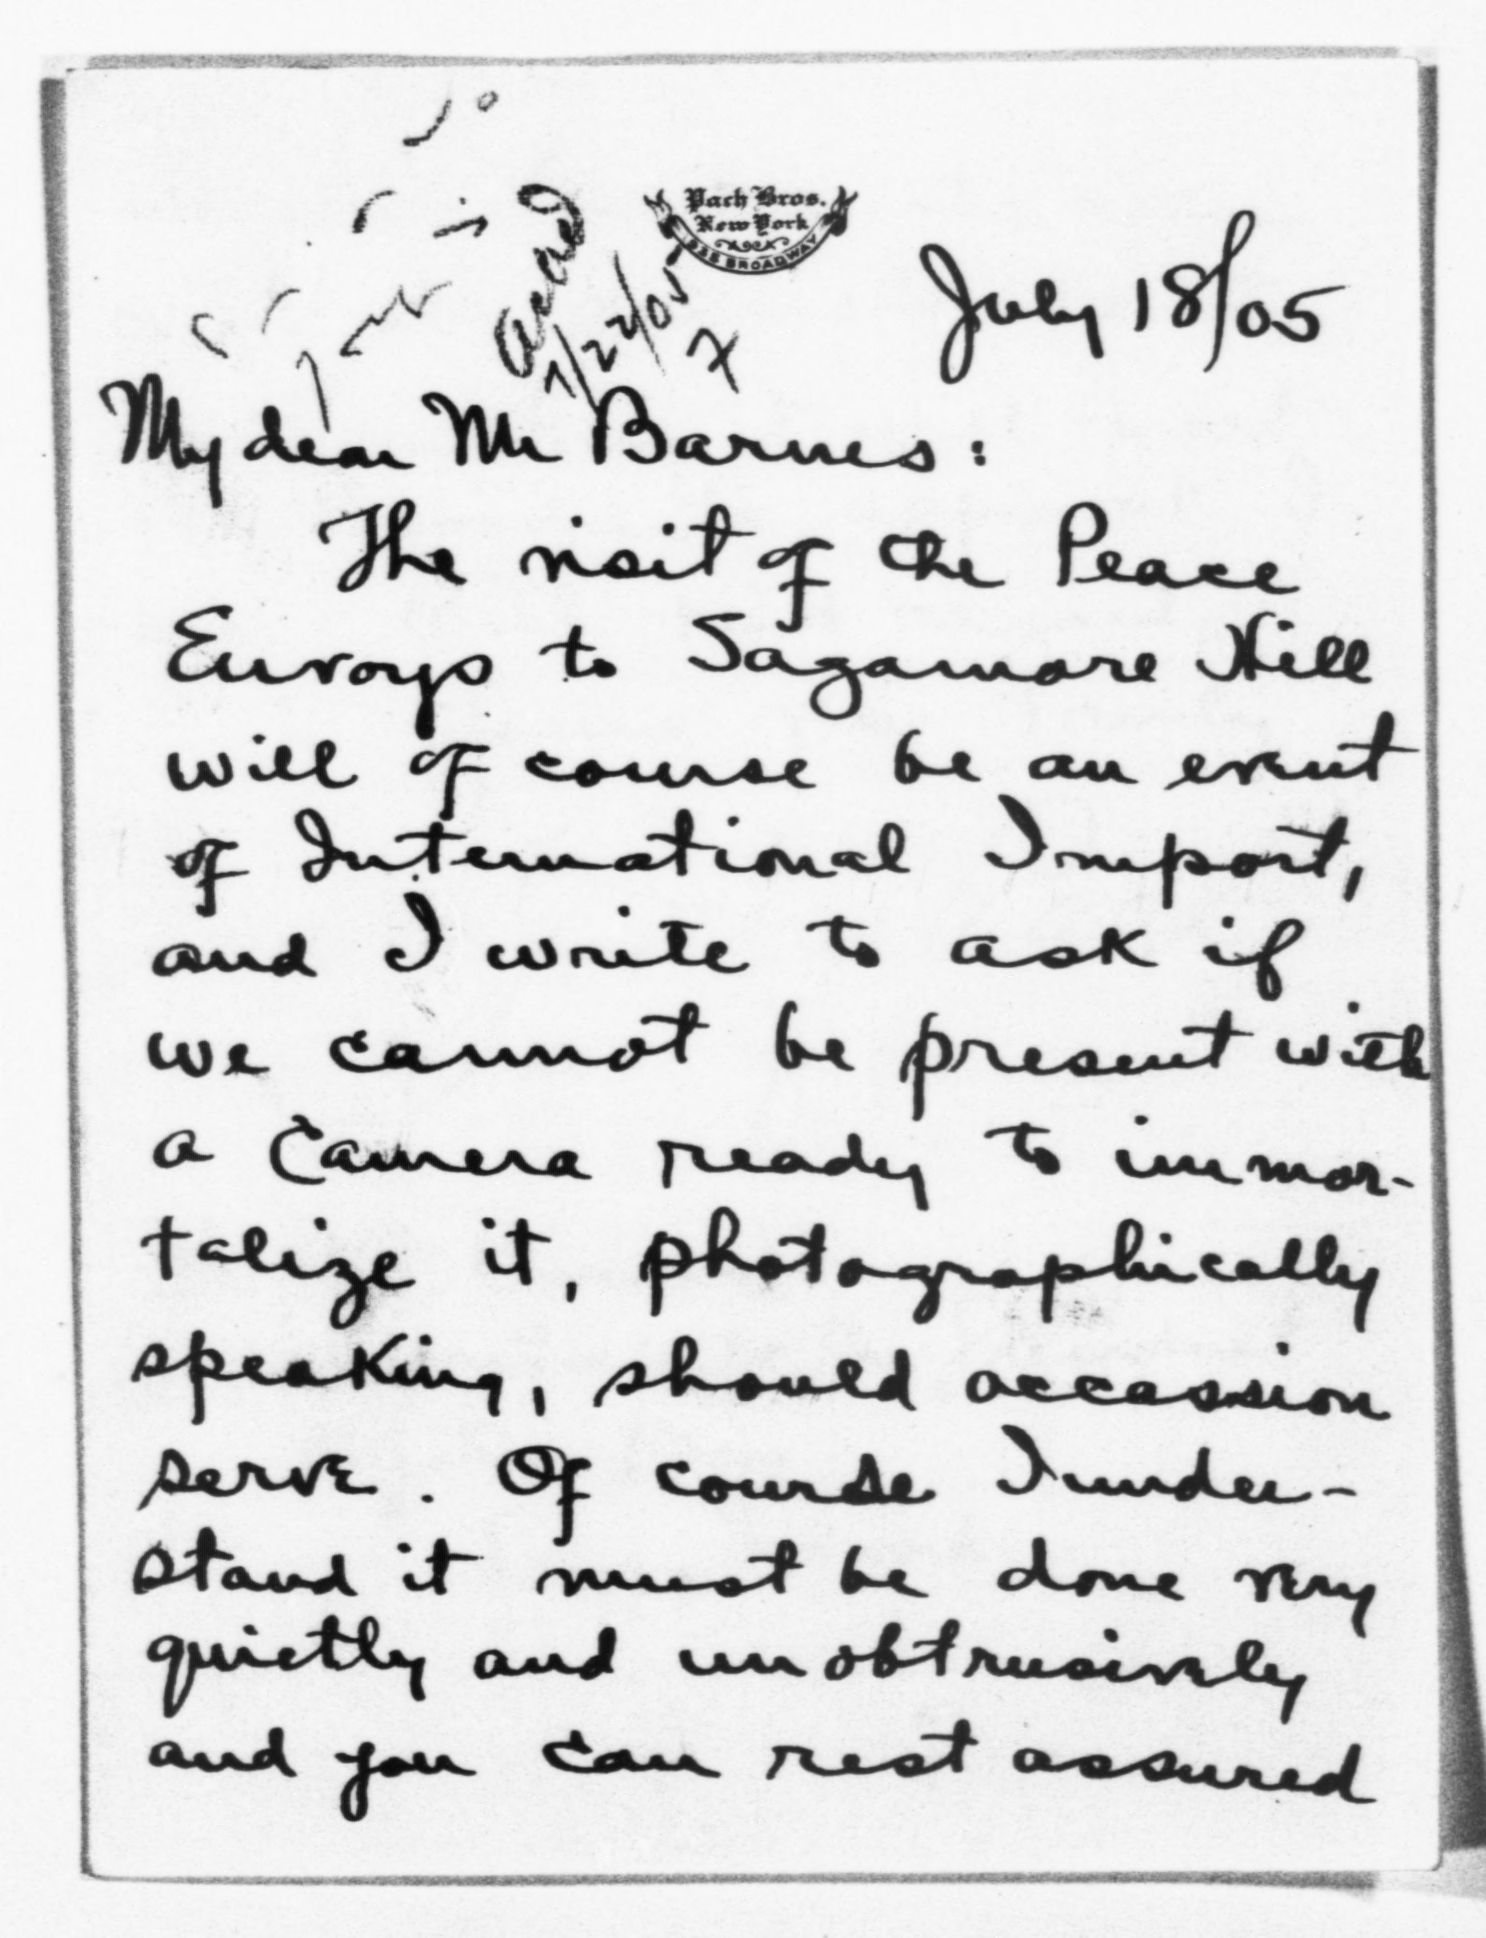 Pach Bros.
New York
935 BROADWAY
July 18/05
Ackd
7/22/05
My dear Mr Barnes:
The visit of the Peace
Envoys to Sagamore Hill
will of course be an event
of International Import,
and I write to ask if
we cannot be present with
a Camera ready to immor-
talize it, photographically
speaking, should occassion
serve. Of course I under-
stand it must be done very
quietly and unobtrusively
and you can rest assured